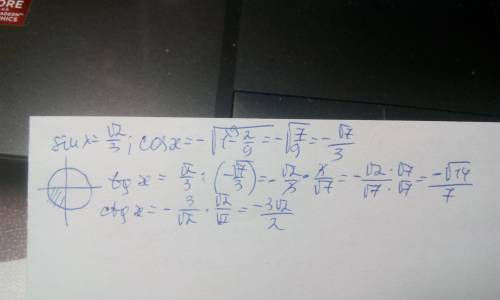 ORE
sin x = √2/3; cos x = -√(1 - 2/9) = -√(7/9) = -√7/3
tg x = √2/3 : (-√7/3) = -√2/3 · 3/√7 = -√2 · √7/√7 · √7 = -√14/7
ctg x = -3/√2 · √2/√2 = -3√2/2